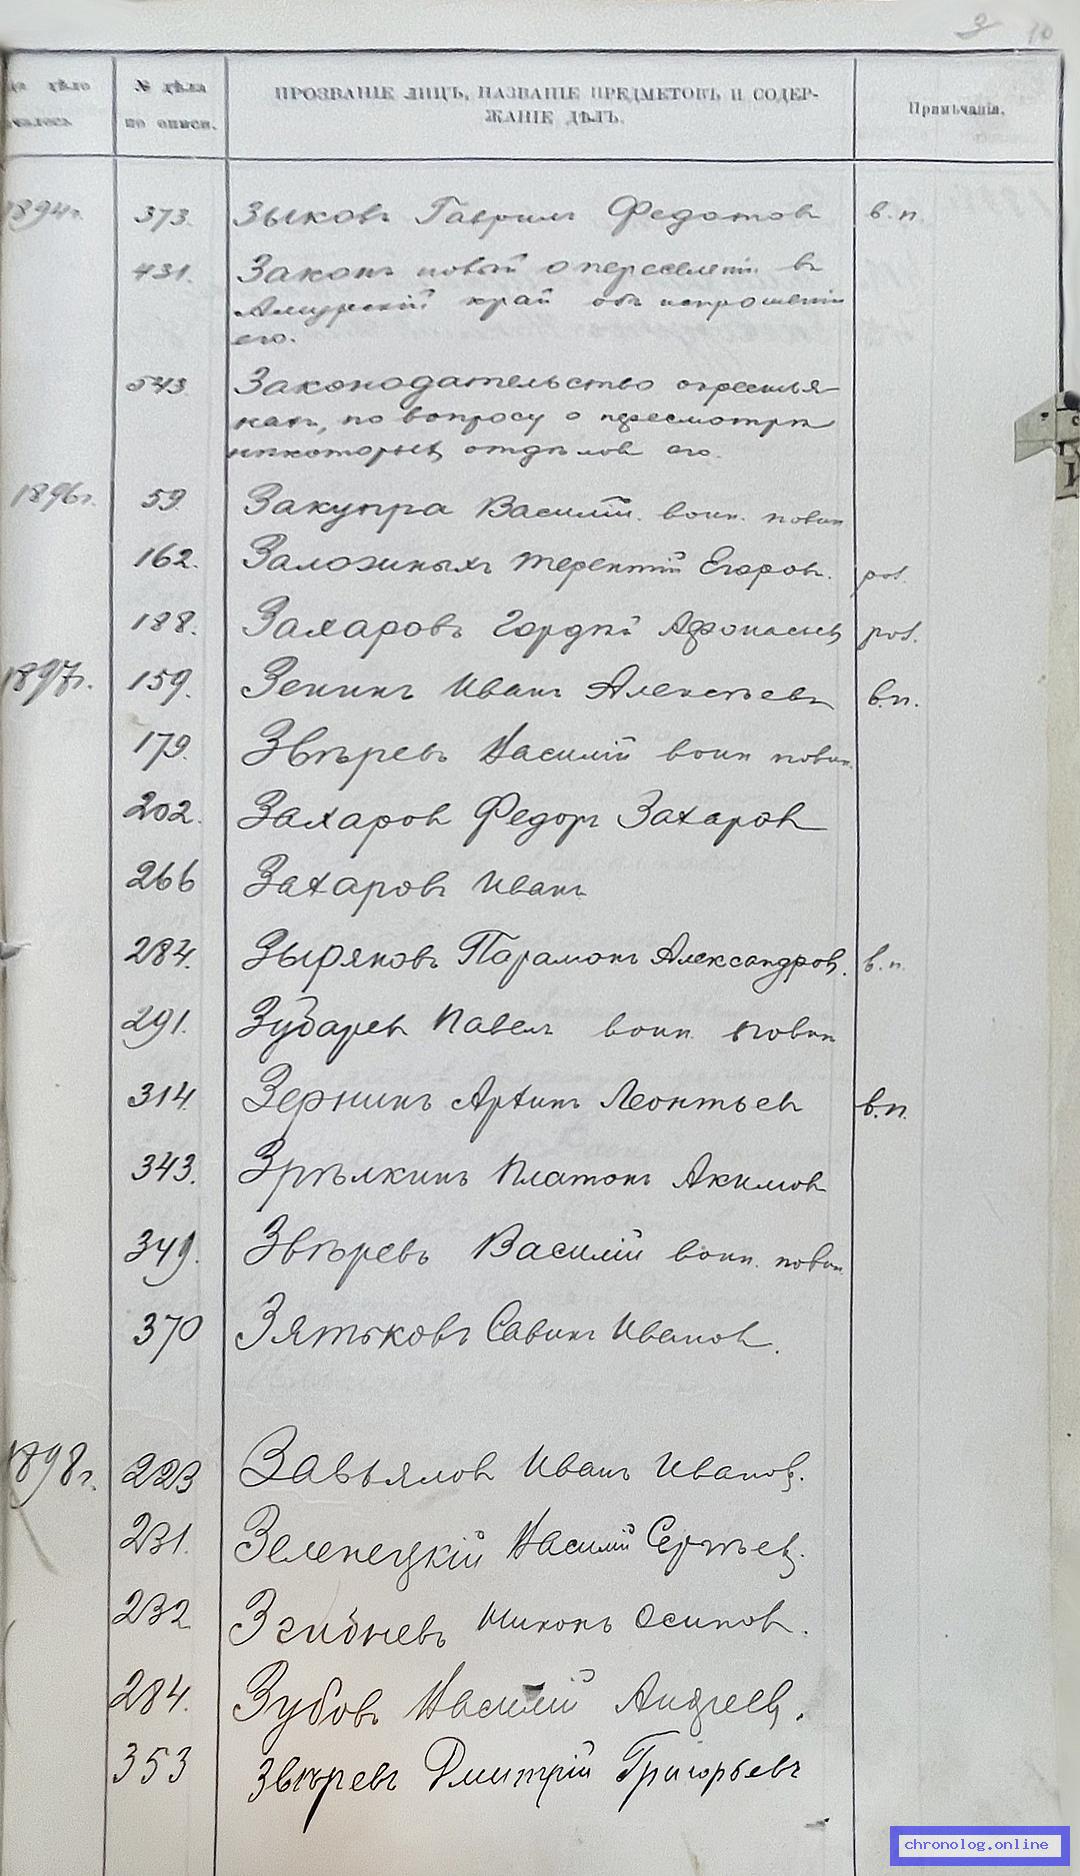 3 10
да дѣло № дѣла ПРОЗВАНІЕ ЛИЦЪ, НАЗВАНІЕ ПРЕДМЕТОВЪ И СОДЕР- Примѣчанія.
чалось по описи. ЖАНІЕ ДѢЛЪ.
1894г. 373. Зыковъ Гаврилъ Федотовъ в.п.
431. Законъ новый о переселеніи въ
Амурскій край объ испрошеніи
его.
543 Законодательство о крестья
нахъ, по вопросу о пересмотрѣ
нѣкоторыхъ отдѣловъ его.
1896г. 59. Закупра Василій. воин. повин
162. Заложныхъ Терентій Егоровъ. рос.
188. Захаровъ Гордѣй Афонасьев рос.
1897г. 159. Зенинъ Иванъ Алексѣевъ в.п.
179. Звѣревъ Василій воин повин.
202. Захаровъ Федоръ Захаровъ
266 Захаровъ Иванъ
284. Зыряновъ Парамонъ Александров. в.п.
291. Зубаревъ Павелъ воин. повин
314. Зернинъ Архипъ Леонтьевъ в.п.
343. Зрѣлкинъ Платонъ Акимовъ
349. Звѣревъ Василій воин. повин
370 Зятьковъ Савинъ Ивановъ.
1898г. 223 Завьяловъ Иванъ Иванов.
231. Зеленецкій Василій Сергѣев.
232. Згибневъ Никонъ Осиповъ.
284. Зубовъ Василій Андреев.
353 Звѣревъ Дмитрій Григорьевъ
chronolog.online